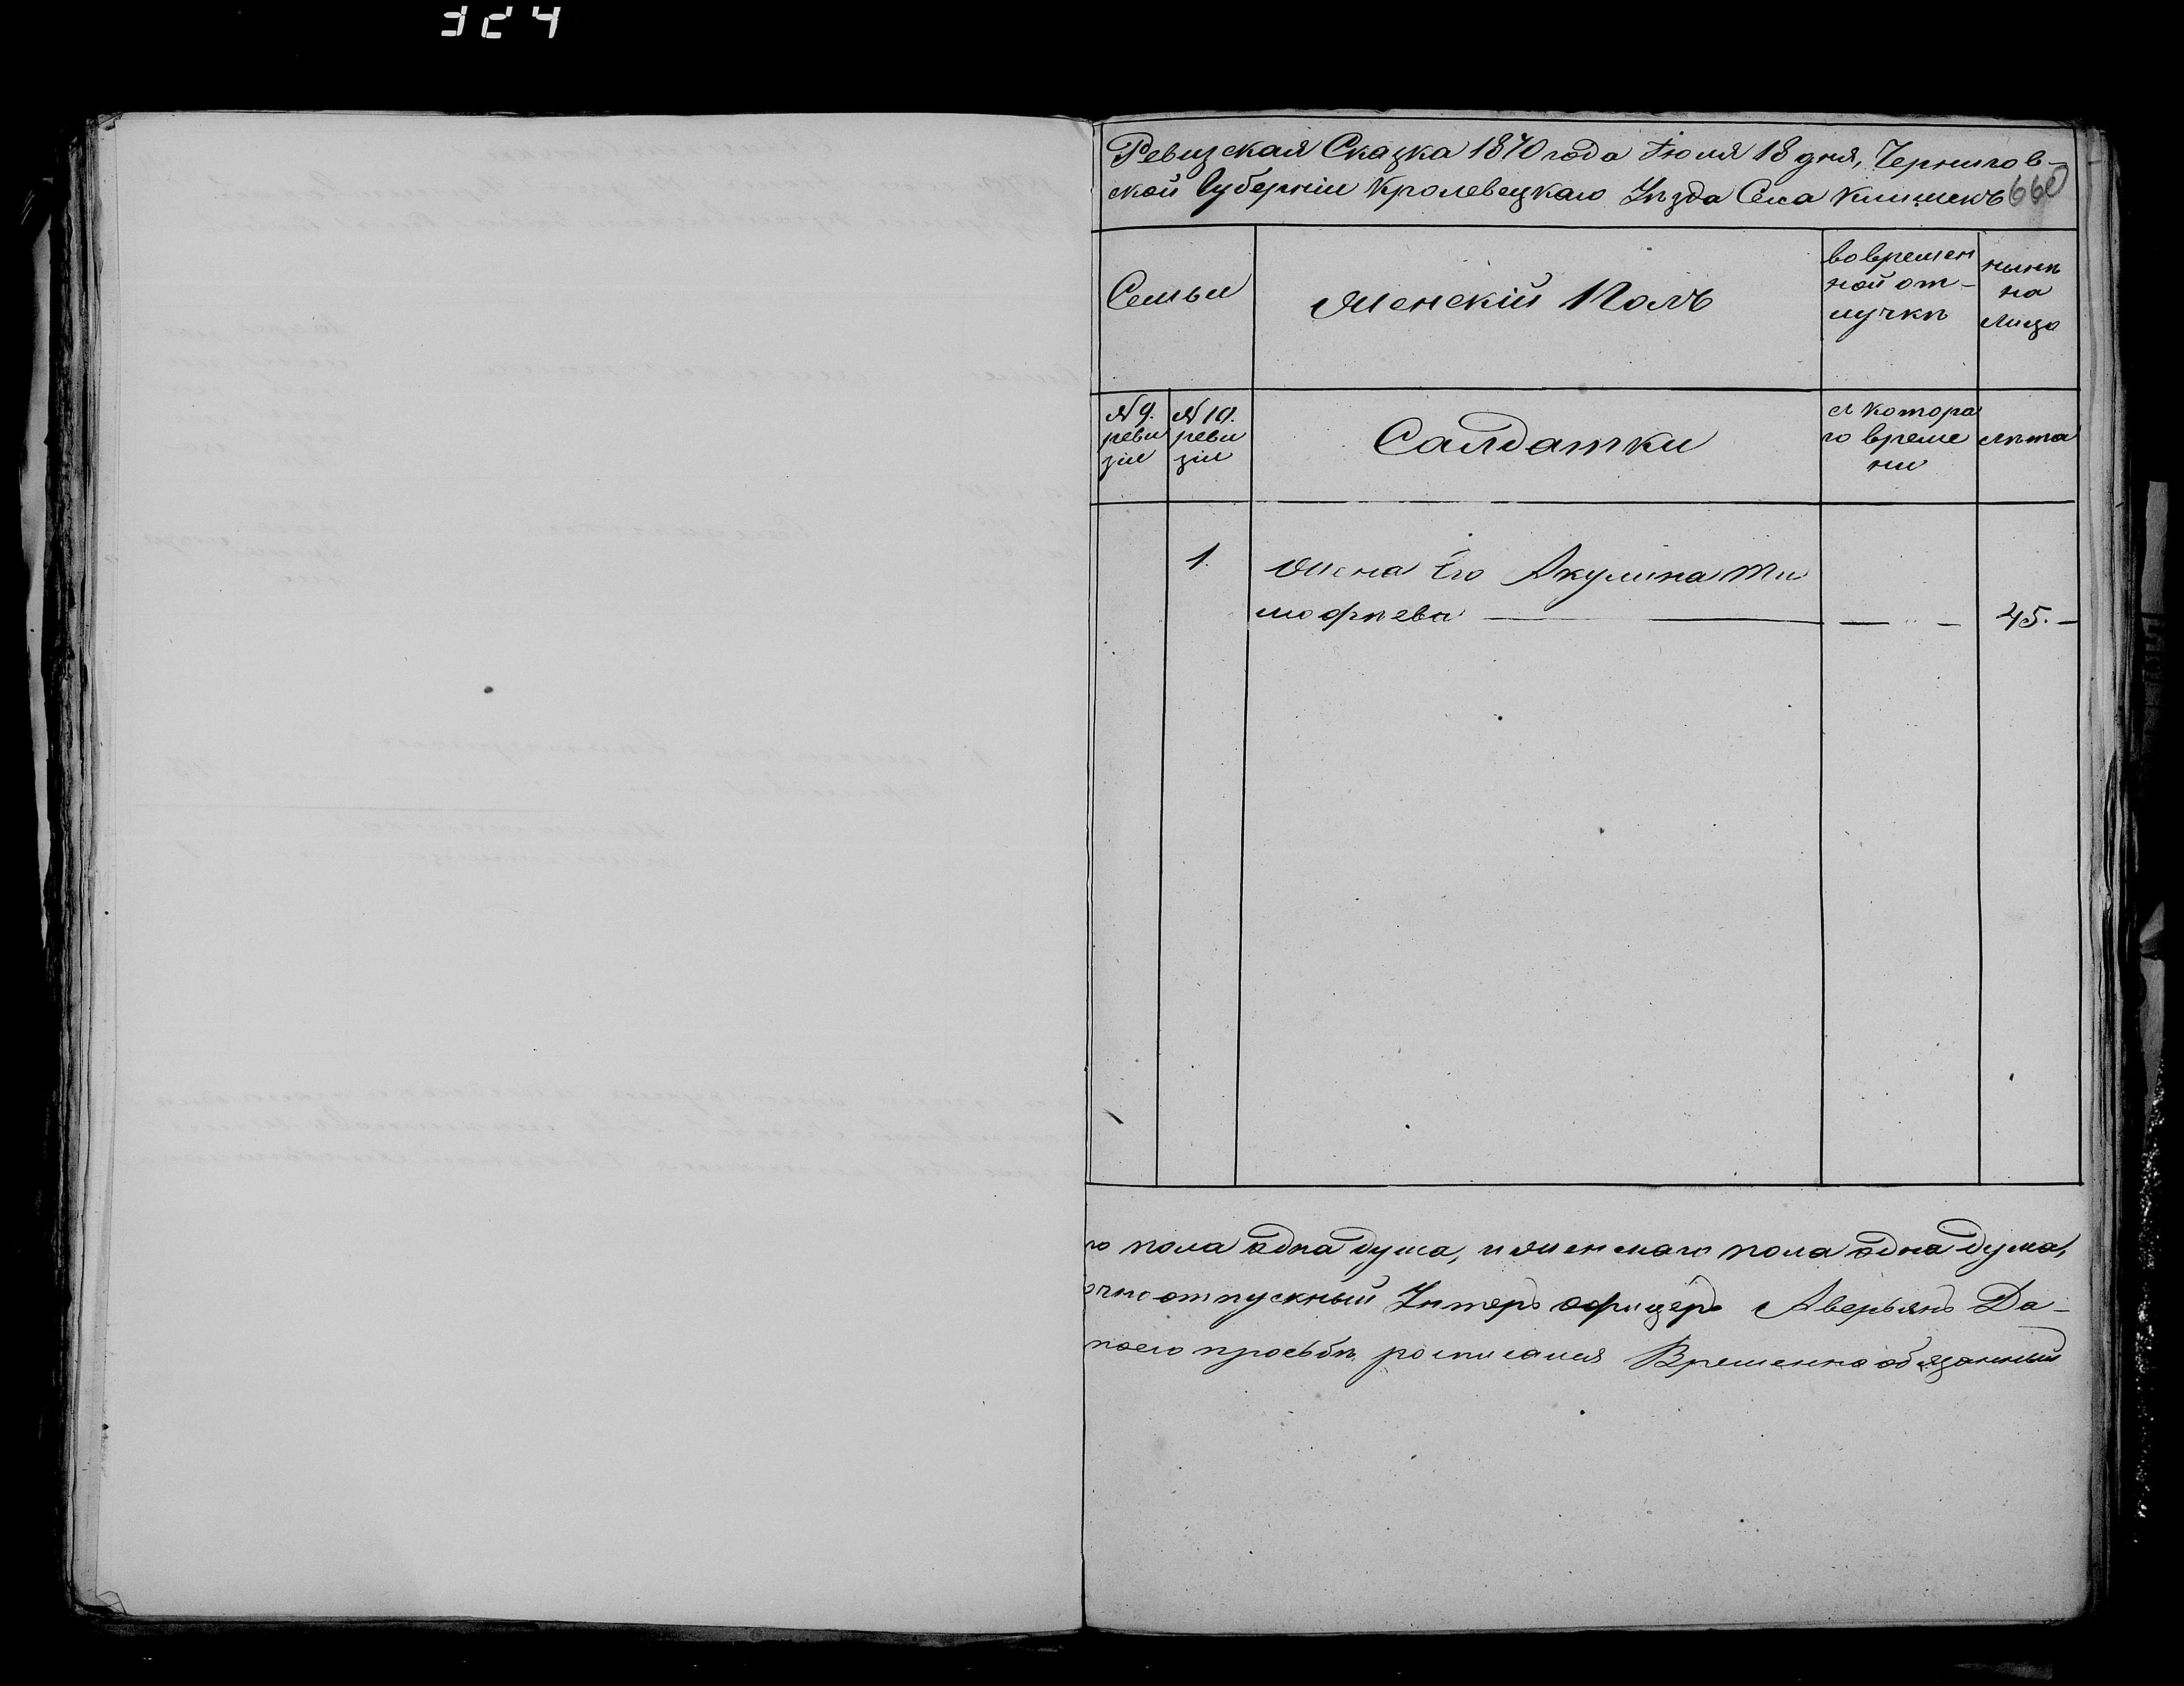 324
Ревизская Сказка 1870 года Іюля 18 дня, Чернигов-
ской Губерніи Кролевецкаго Уѣзда Села Клишекъ 660
Семьи
Женскій Полъ
во времен
ной от-
лучкѣ
нынѣ
на
лицо
№ 9.
реви
зіи
№ 10.
реви
зіи
Салдатки
с котора
го време
ни
лѣта
1.
Жена Его Акулина Ти
мофѣева — — — — 45. —
го пола одна душа, и женскаго пола одна душа,
очно отпускный Унтеръ офицеръ Аверьянъ Да-
по его просьбѣ росписался Временно обязанный